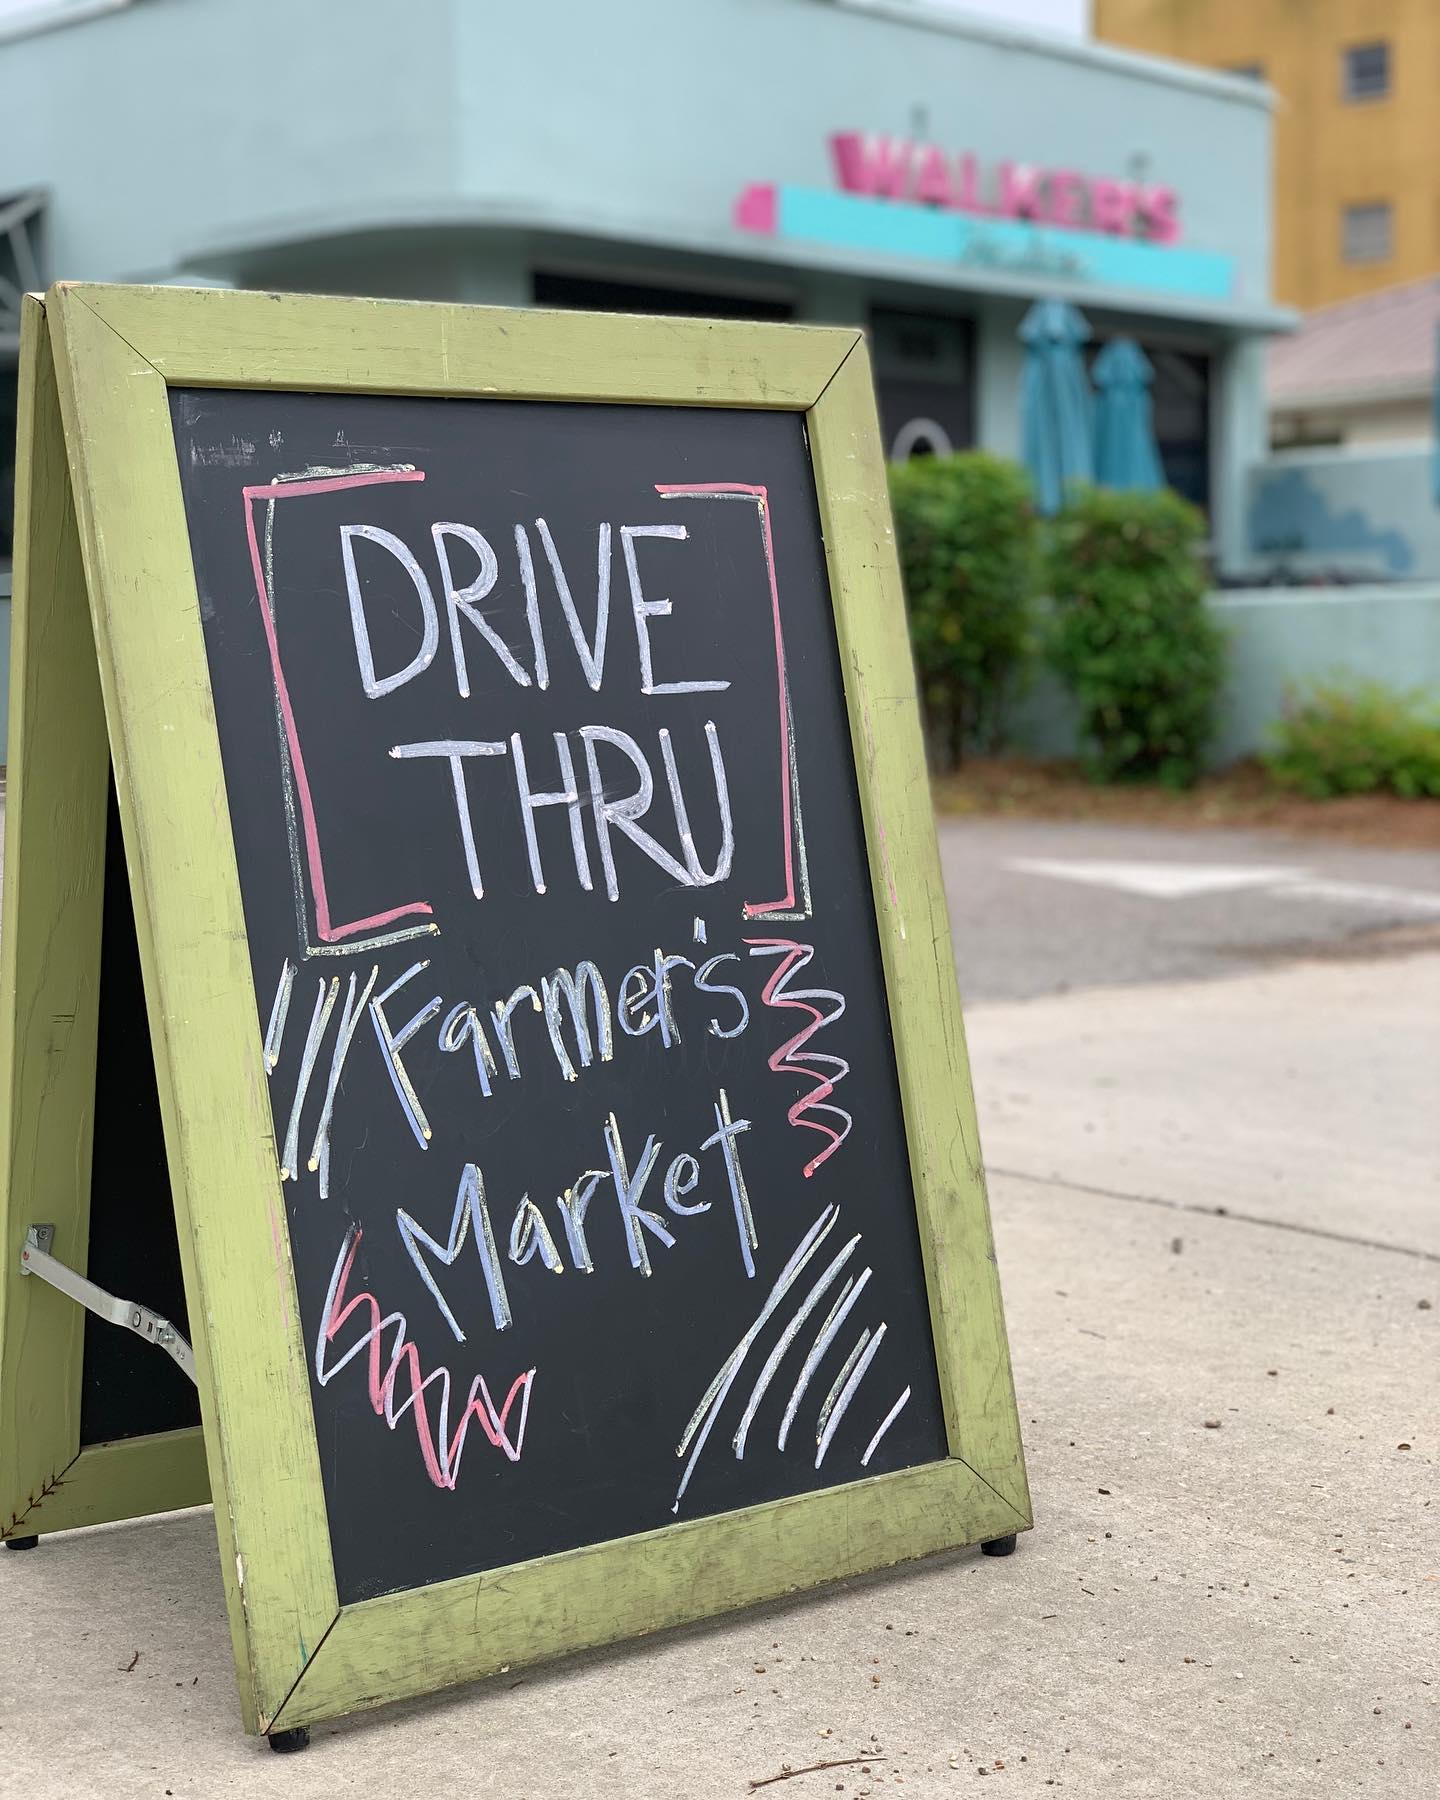 WALKER'S
DRIVE
THRU
Farmer's
Market